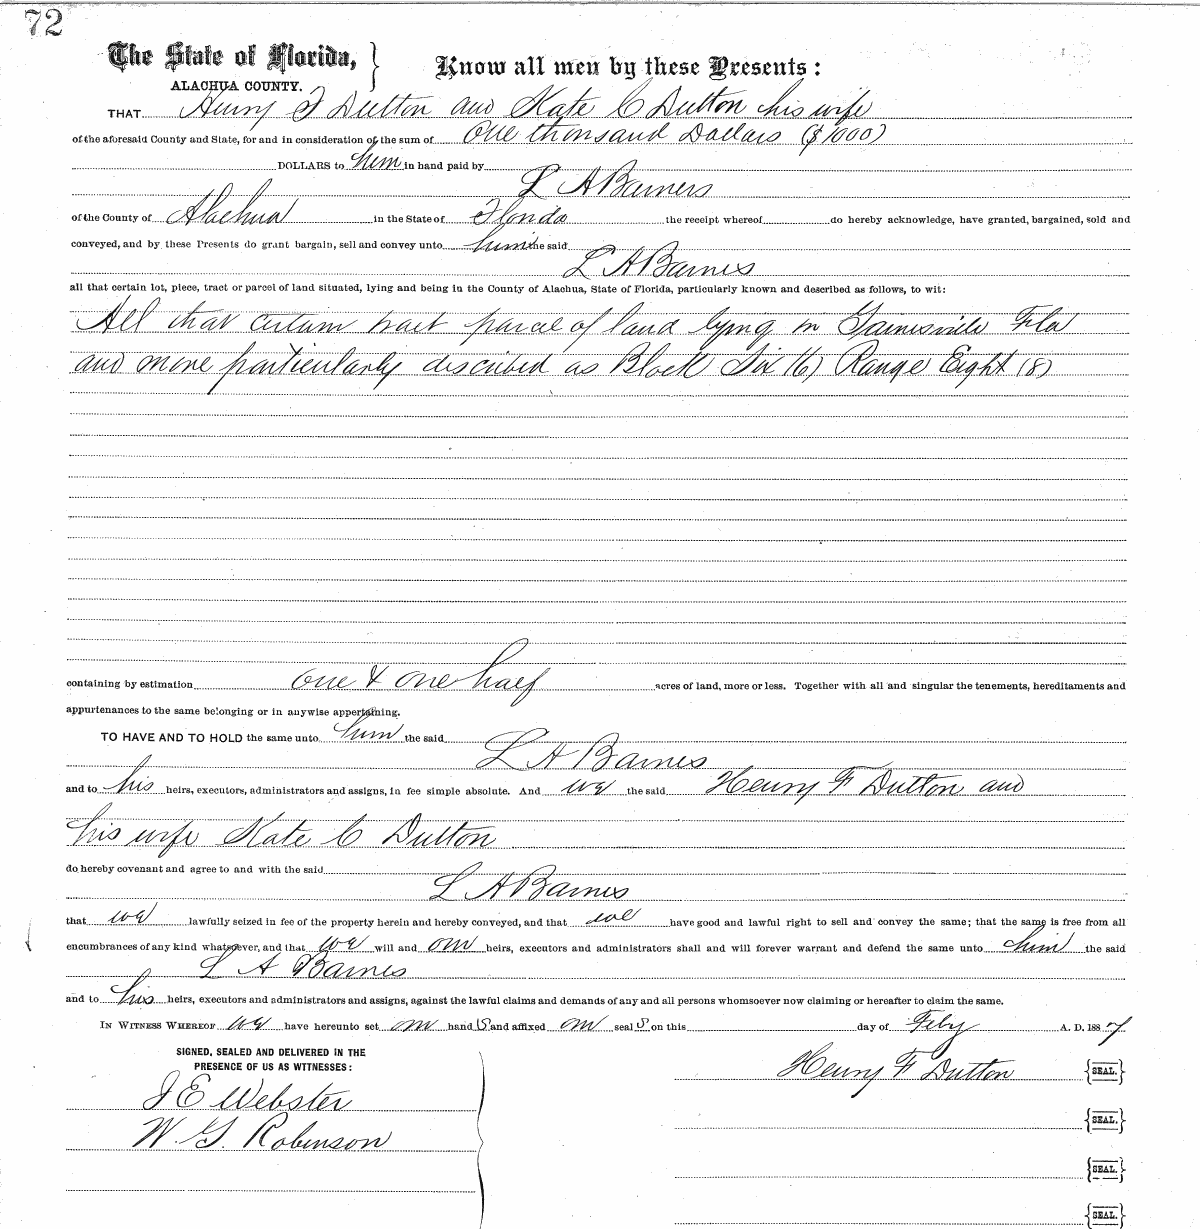 72
The State of Florida, } Know all men by these Presents:
ALACHUA COUNTY.
THAT Henry F Dutton and Kate C Dutton his wife
of the aforesaid County and State, for and in consideration of the sum of One thousand Dollars ($1000)
DOLLARS to him in hand paid by
L A Barners
of the County of Alachua in the State of Florida the receipt whereof do hereby acknowledge, have granted, bargained, sold and
conveyed, and by these Presents do grant bargain, sell and convey unto him the said
L A Barnes
all that certain lot, piece, tract or parcel of land situated, lying and being in the County of Alachua, State of Florida, particularly known and described as follows, to wit:
All that certain tract parcel of land lying in Gainesville Fla
and more particularly described as Block Six (6) Range Eight (8)
containing by estimation one & one half acres of land, more or less. Together with all and singular the tenements, hereditaments and
appurtenances to the same belonging or in anywise appertaining.
TO HAVE AND TO HOLD the same unto him the said
L A Barnes
and to his heirs, executors, administrators and assigns, in fee simple absolute. And we the said Henry F Dutton and
his wife Kate C Dutton
do hereby covenant and agree to and with the said
L A Barnes
that we lawfully seized in fee of the property herein and hereby conveyed, and that we have good and lawful right to sell and convey the same; that the same is free from all
encumbrances of any kind whatsoever, and that we will and our heirs, executors and administrators shall and will forever warrant and defend the same unto him the said
L A Barnes
and to his heirs, executors and administrators and assigns, against the lawful claims and demands of any and all persons whomsoever now claiming or hereafter to claim the same.
IN WITNESS WHEREOF we have hereunto set our hand S and affixed our seal S on this day of Feby A. D. 1887
SIGNED, SEALED AND DELIVERED IN THE
PRESENCE OF US AS WITNESSES:
Henry F Dutton {SEAL.}
J E Webster
{SEAL.}
W. G. Robinson
{SEAL.}
{SEAL.}